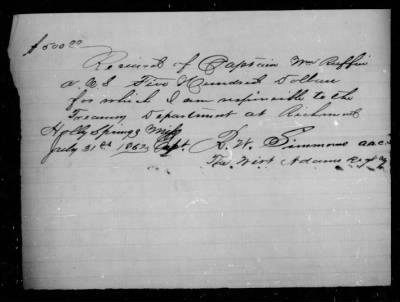 $500.00
Received of Captain Wm Ruffin
A.C.S Five Hundred Dollars
for which I am responsible to the
Treasury Department at Richmond
Holly Springs Miss
July 31st 1862 Capt. R. W. Simmons aac
The Wirt Adams Regt